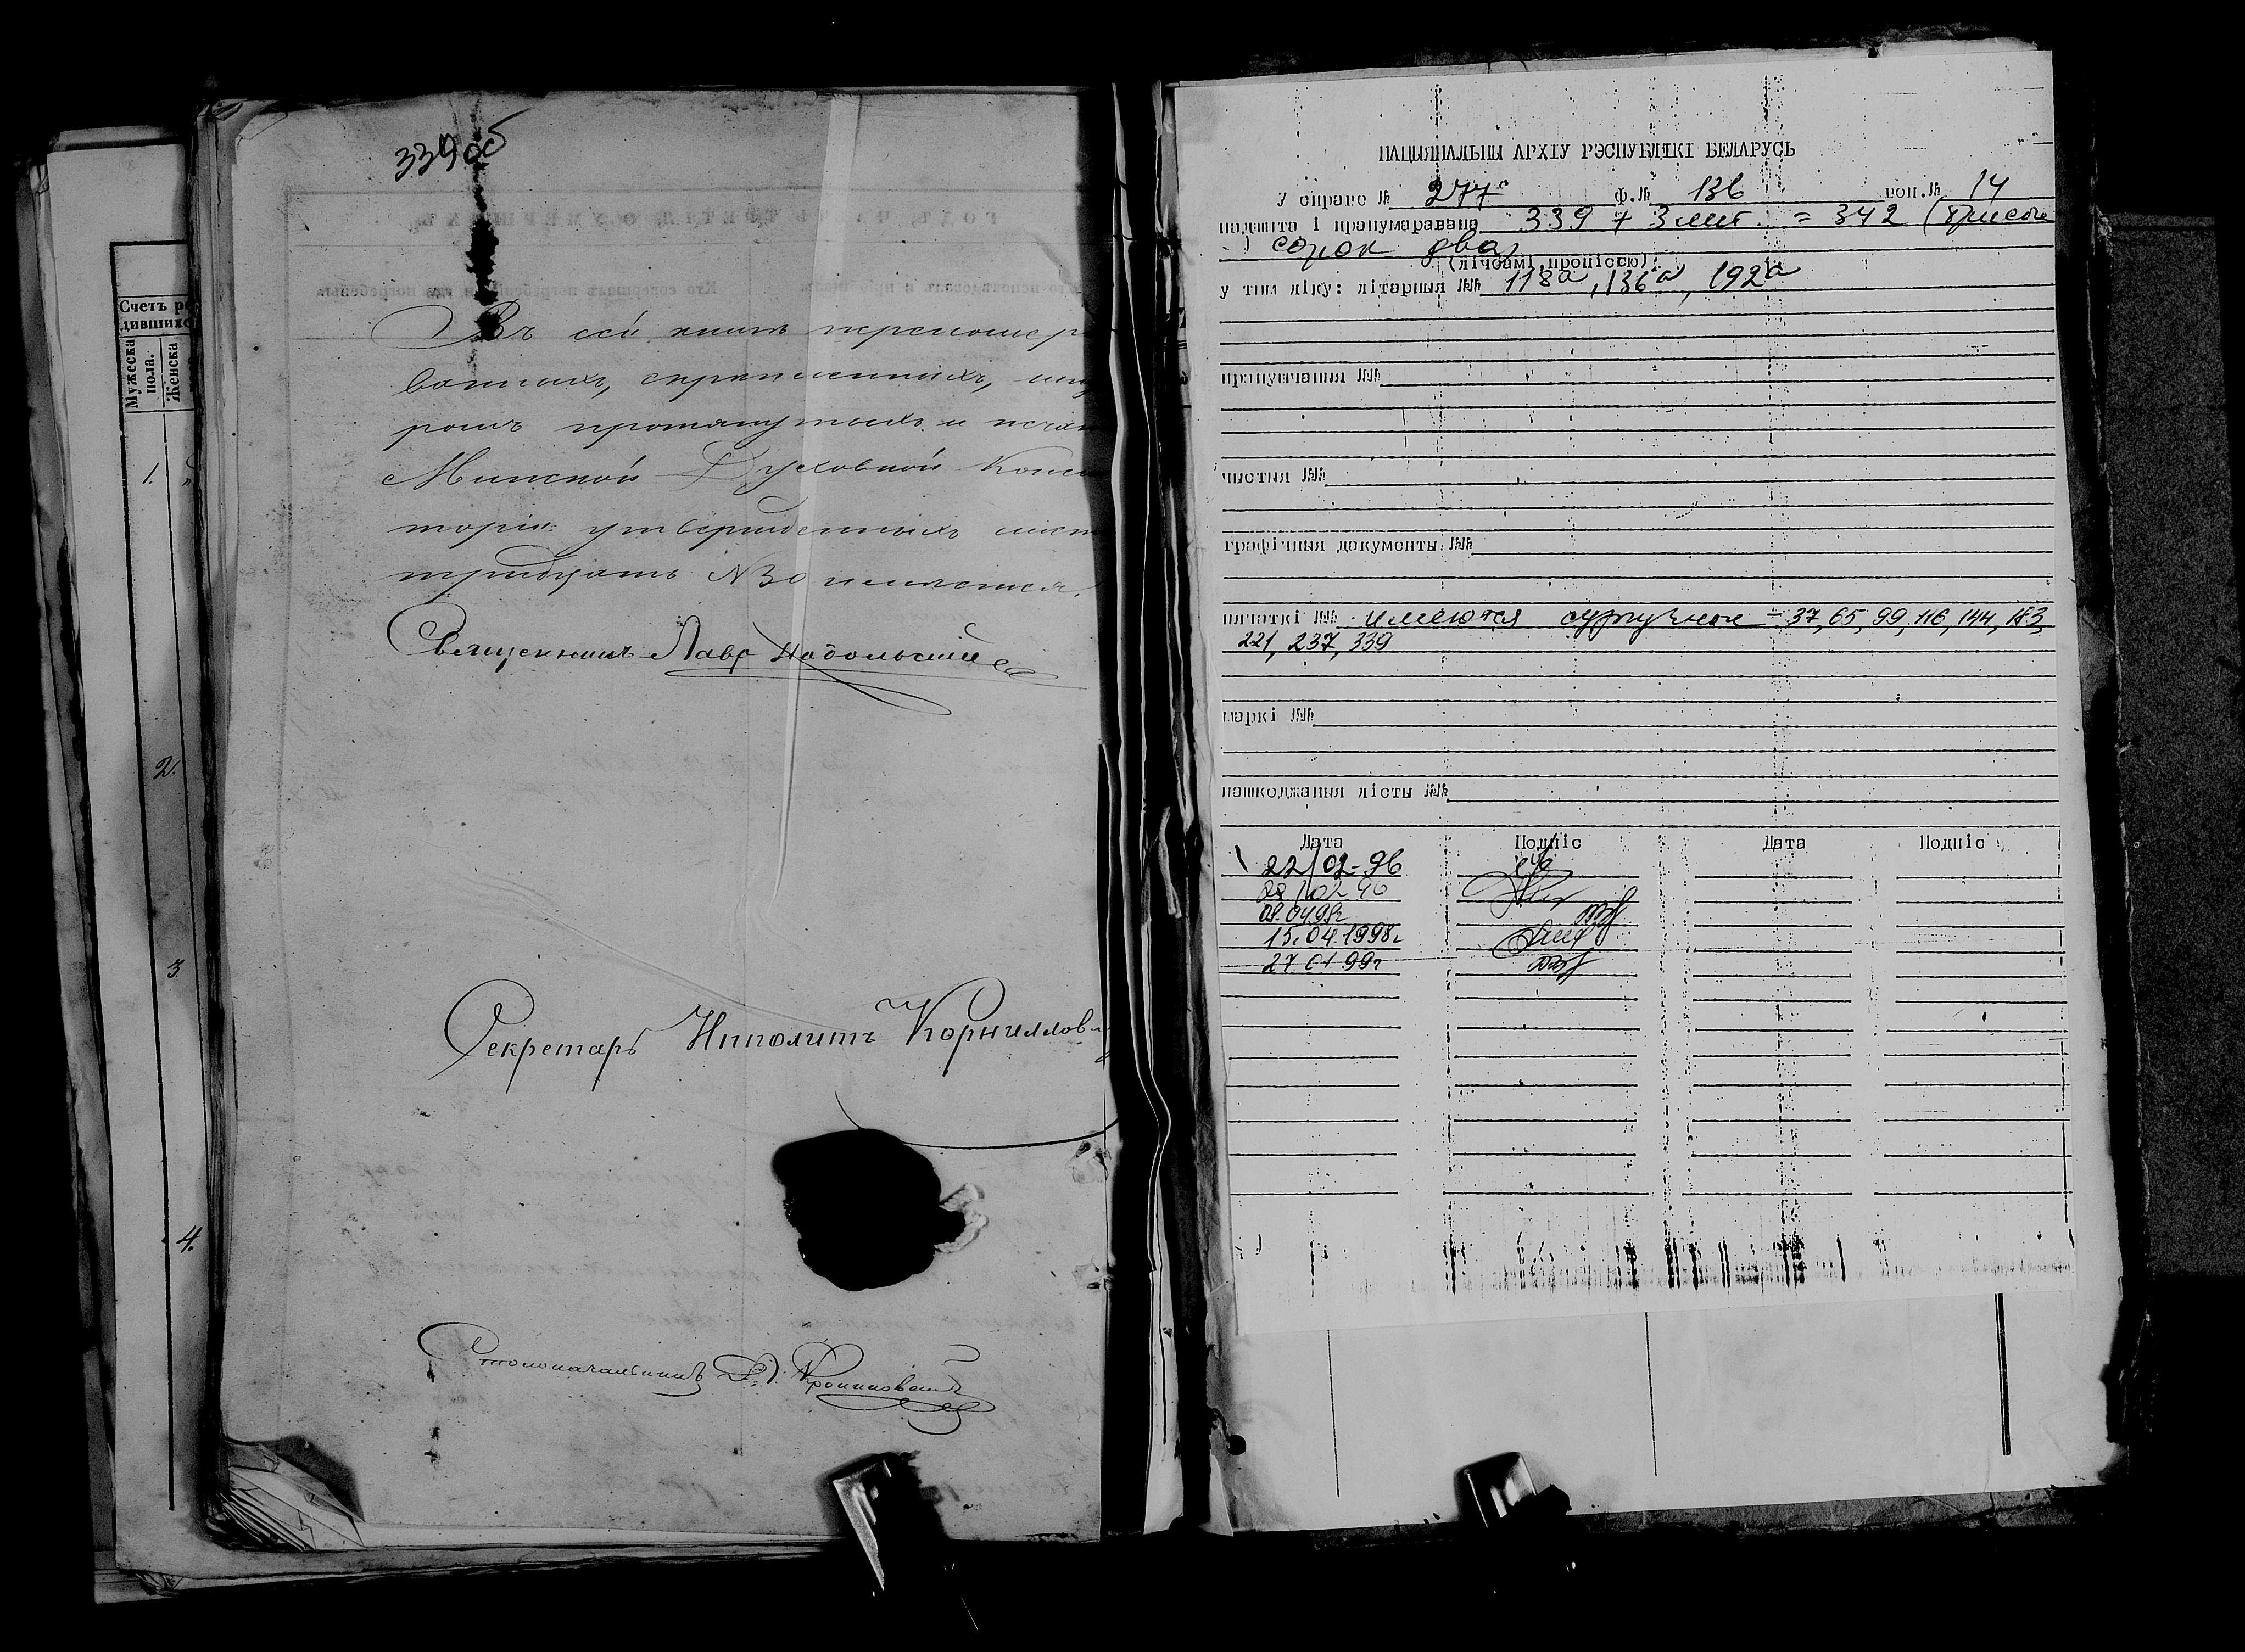 Счетъ ро
дившихс
Мужеска
пола.
Женска
1.
2.
3.
4.
339об
ГОДЪ, ЧАСТЬ ТРЕТІЯ, О УМЕРШИХЪ.
Кто совершалъ погребеніе и гдѣ погребены.
Въ сей книгѣ перенумеро
ванныхъ, скрѣпленныхъ, шну
ромъ протянутыхъ и печат
Минской Духовной Конси
торіи утвержденныхъ лист
тридцать №30 имѣется.
Священникъ Лавр Подольский
Секретарь Ипполитъ Корнилов
Столоначальникъ
НАЦЫЯНАЛЬНЫ АРХІУ РЭСПУБЛІКІ БЕЛАРУСЬ
У справе № 277 Ф.№ 136 воп.№ 14
падшыта і пранумаравана 339 + 3 лит. = 342 (триста
сорок два)
(лічбамі, пропіссю)
у тым ліку: літарныя №№ 118а, 136а, 192а
прапушчаныя №№
чыстыя №№
графічныя дакументы №№
пячаткі №№ имеются сургучные - 37, 65, 99, 116, 144, 183,
221, 237, 339
маркі №№
пашкоджаныя лісты №№
Дата Подпіс Дата Подпіс
22/02-96
08.04.98г
15.04.1998г
27 01 99г